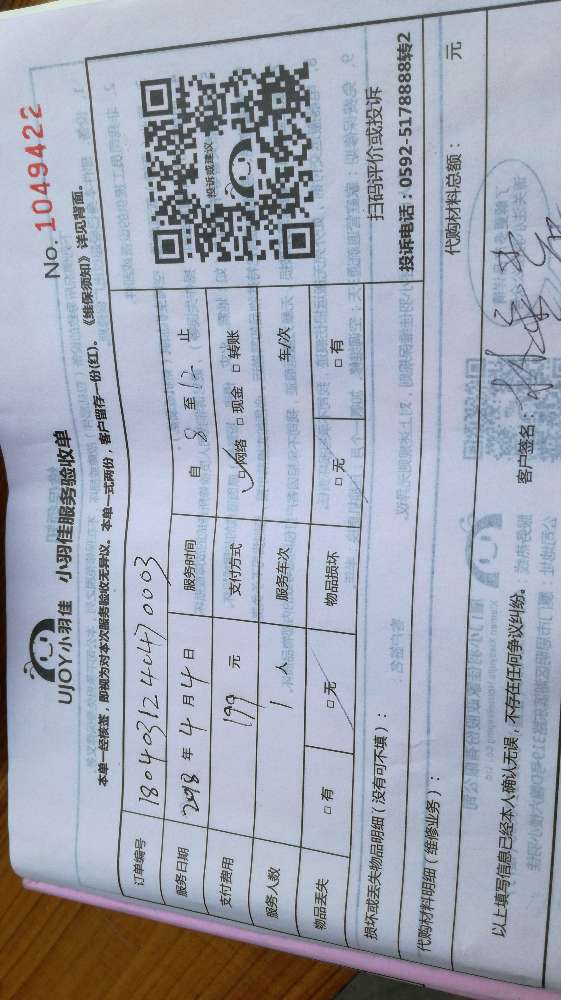 UJOY小羽佳 小羽佳服务验收单
No. 1049422
本单一经核签，即视为对本次服务验收无异议。本单一式两份，客户留存一份(红)。《维保须知》详见背面。
订单编号 1804031240470003
服务日期 2018 年 4 月 4 日 服务时间 自 8 至 12 止
支付费用 199 元 支付方式 ☑网络 □现金 □转账
服务人数 1 人 服务车次 车/次
物品丢失 □有 □无 物品损坏 □无 □有
投诉或建议
扫码评价或投诉
投诉电话：0592-5178888转2
损坏或丢失物品明细（没有可不填）：
代购材料明细（维修业务）： 代购材料总额： 元
以上填写信息已经本人确认无误，不存在任何争议纠纷。 客户签名：